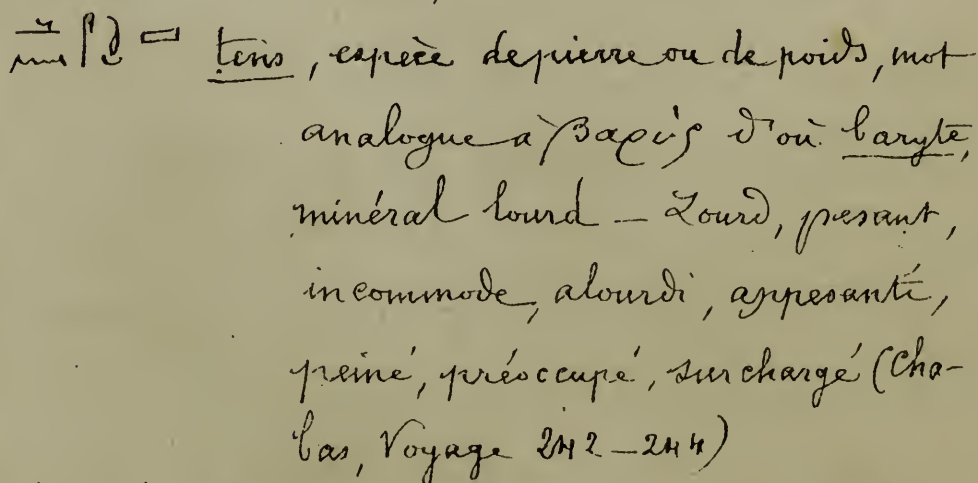 tens, espèce de pierre ou de poids, mot
analogue à βαρύς d'où baryte,
minéral lourd — Lourd, pesant,
incommode, alourdi, appesanti,
peiné, préoccupé, surchargé (Cha-
bas, Voyage 242 — 244)